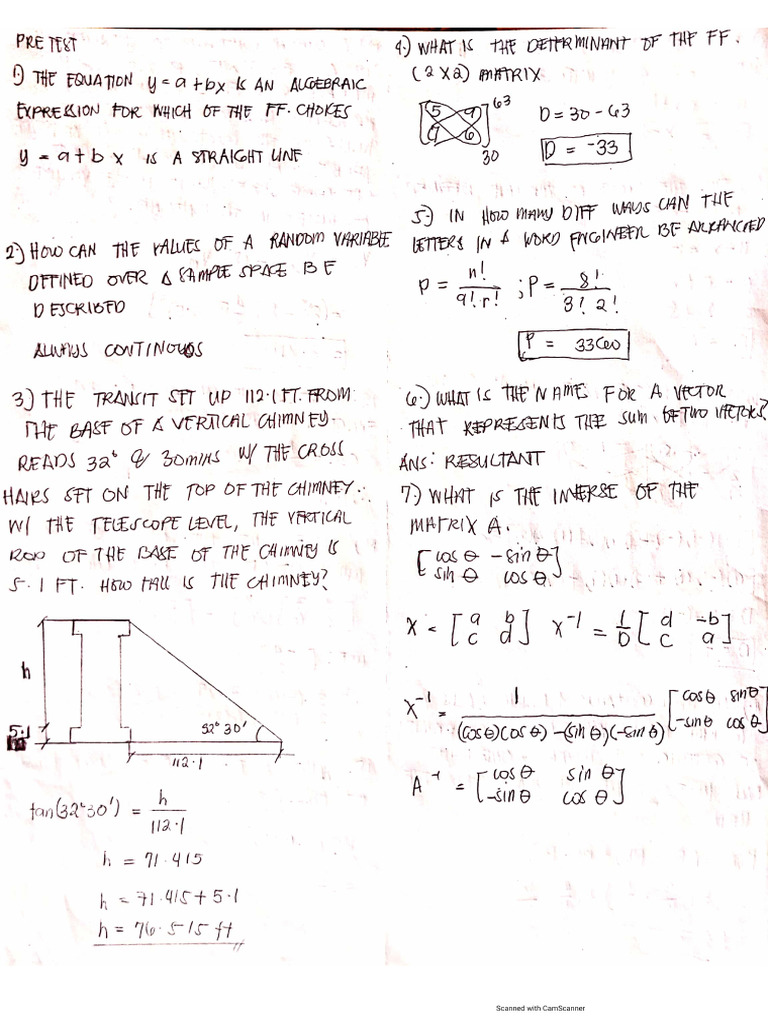 PRE TEST
1.) THE EQUATION y = a + bx IS AN ALGEBRAIC
EXPRESSION FOR WHICH OF THE FF. CHOICES
y = a + b x IS A STRAIGHT LINE
2.) HOW CAN THE VALUES OF A RANDOM VARIABLE
DEFINED OVER A SAMPLE SPACE BE
DESCRIBED
ALWAYS CONTINOUS
3.) THE TRANSIT SET UP 112.1 FT. FROM
THE BASE OF A VERTICAL CHIMNEY.
READS 32° & 30MINS W/ THE CROSS
HAIRS SET ON THE TOP OF THE CHIMNEY.
W/ THE TELESCOPE LEVEL, THE VERTICAL
ROD OF THE BASE OF THE CHIMNEY IS
5.1 FT. HOW TALL IS THE CHIMNEY?
h
5.1
32° 30'
112.1
tan(32°30') = h / 112.1
h = 71.415
h = 71.415 + 5.1
h = 76.515 ft
4.) WHAT IS THE DETERMINANT OF THE FF.
(2 X 2) MATRIX
[5 9] 63
[7 6] 30
D = 30 - 63
D = -33
5.) IN HOW MANY DIFF WAYS CAN THE
LETTERS IN A WORD ENGINEER BE ARRANGED
P = n! / q! r! ; P = 8! / 3! 2!
P = 3360
6.) WHAT IS THE NAME FOR A VECTOR
THAT REPRESENTS THE SUM OF TWO VECTORS?
ANS: RESULTANT
7.) WHAT IS THE INVERSE OF THE
MATRIX A.
[cos θ - sin θ]
[sin θ cos θ]
X = [a b] X⁻¹ = 1/D [d -b]
[c d] [c a]
X⁻¹ = 1 / (cos θ)(cos θ) - (sin θ)(-sin θ) [cos θ sin θ]
[-sin θ cos θ]
A⁻¹ = [cos θ sin θ]
[-sin θ cos θ]
Scanned with CamScanner